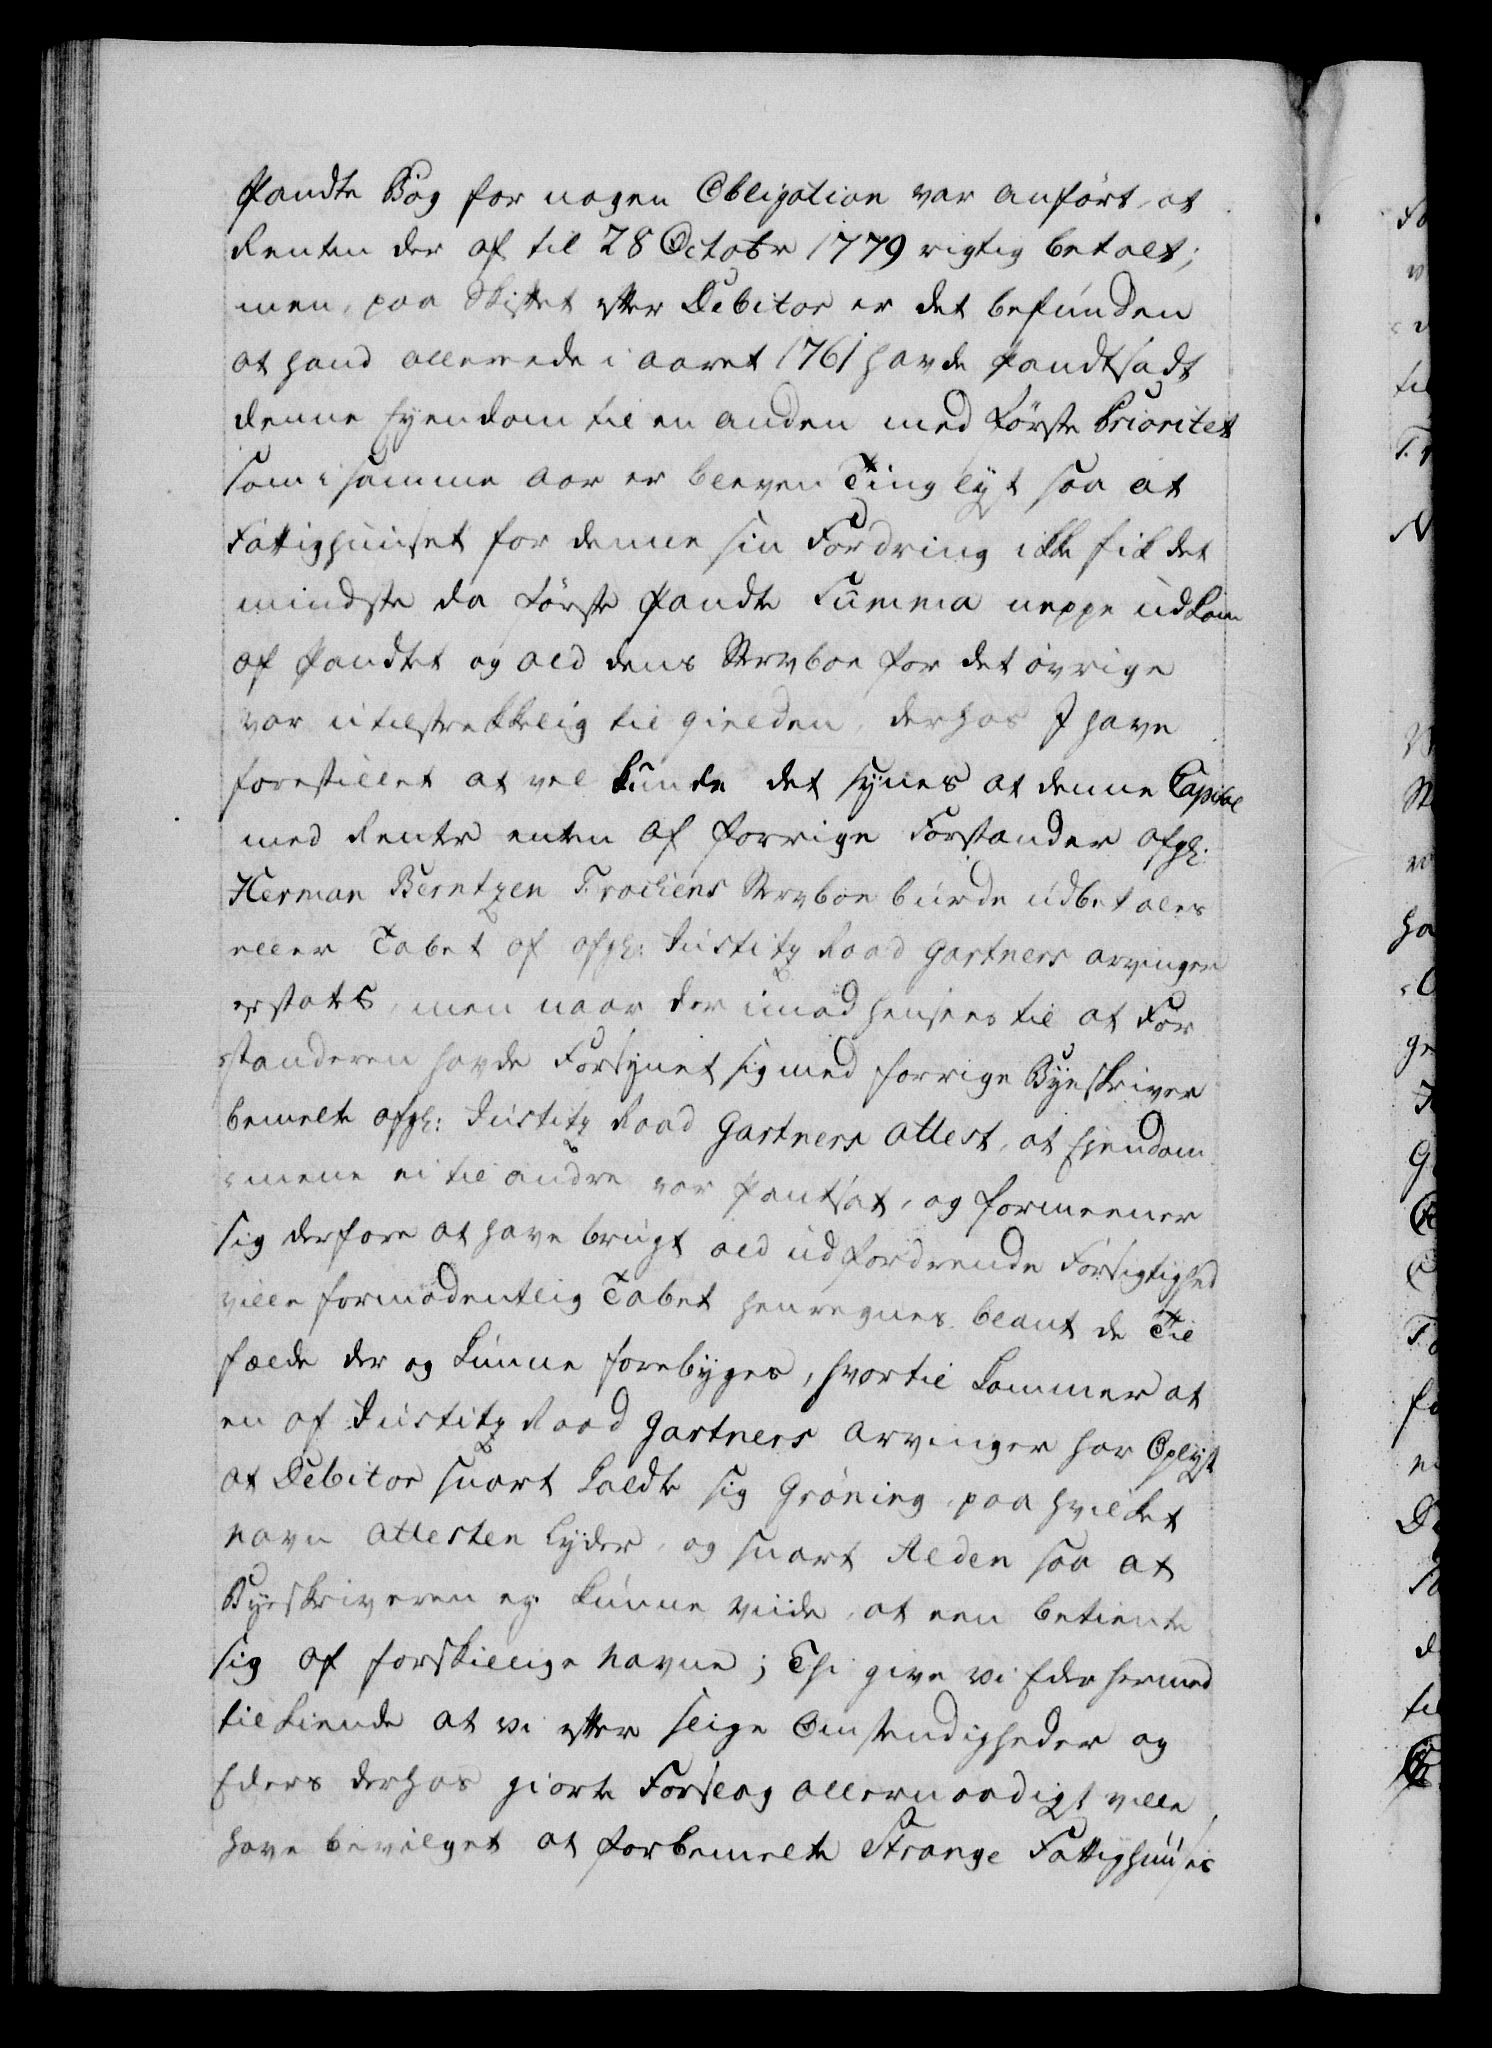 Pandte Bog for nogen Obligation var anført, at
Renten der af til 28 Octobr 1779 rigtig betalt;
men, paa Skiftet efter Debitor er det befunden
at hand allerede i aaret 1761 havde Pandtsadt
denne Eyendom til en anden med første Prioritet
som i samme aar er bleven Tinglyst saa at
Fattighuuset for denne sin Fordring ikke fik det
mindste da første Pandte Summa neppe udkom
af Pandtet og ald dens Stervboe for det øvrige
var utilstrekkelig til gielden, derhos I have
forestillet at vel kunde det synes at denne Capital
med Rente enten af forrige Forstander afgl:
Herman Berntzen Frochens Stervboe burde udbetales
eller Tabet af afgl: Justitz Raad Gartners arvinger
erstates, men naar der imod hensees til at For
standeren havde Forsynet sig med forrige Byeskriver
bemelte afgl: Justitz Raad Gartners attest, at Eyendom
mene ei til andre var Pantsat, og formeener
sig derfore at have brugt ald udfordrende Forsigtighed
ville formodentlig Tabet henregnes blant de Til
fælde der og kunne forebyges, hvortil kommer at
en af Justitz Raad Gartners arvinger har Oplyst
at Debitor snart kaldte sig Grøning, paa hvilket
Navn attesten Lyder, og snart Relden saa at
Byeskriveren ey kunne viide, at een betiente
sig af forskiellige Navne; Thi give vi Eder hermed
tilkiende at vi efter slige Omstendigheder og
Eders derhos giorte Forslag allernaadigst ville
have bevilget at forbemelte Strange Fattighuuses